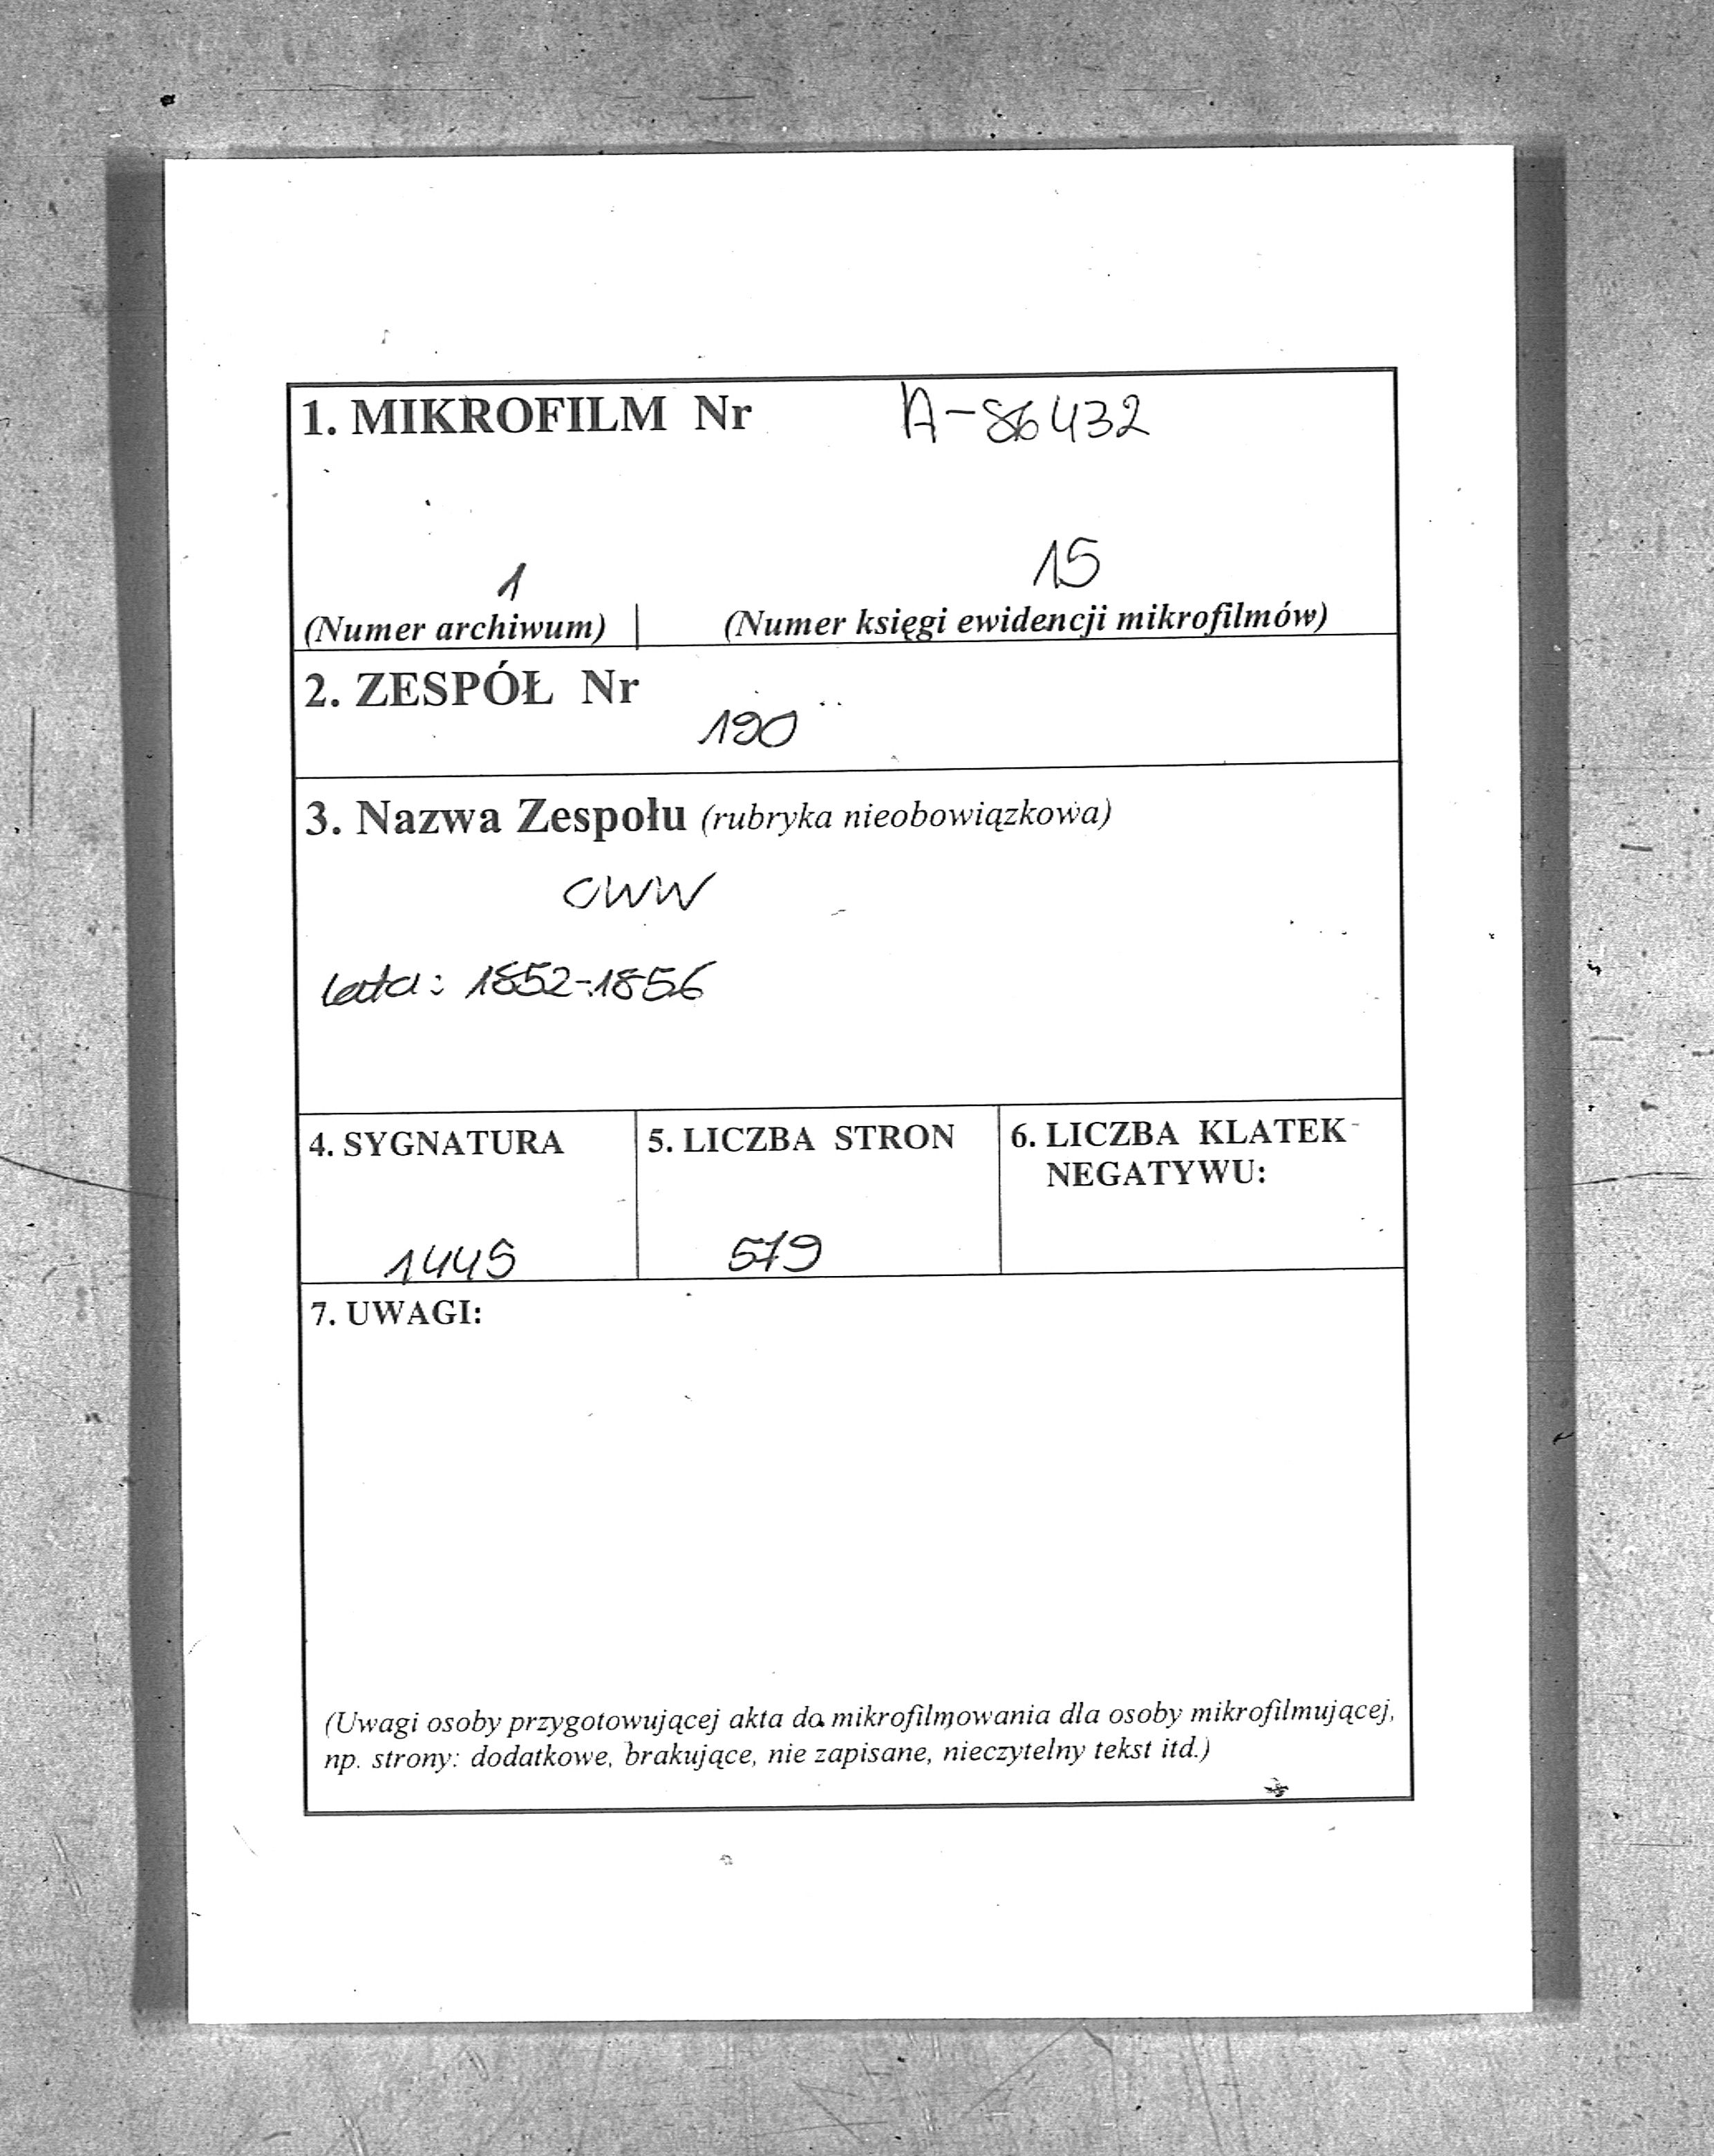 1. MIKROFILM Nr A-86432
1 15
(Numer archiwum) | (Numer księgi ewidencji mikrofilmów)
2. ZESPÓŁ Nr
190
3. Nazwa Zespołu (rubryka nieobowiązkowa)
CWW
lata: 1852-1856
4. SYGNATURA
1445
5. LICZBA STRON
579
6. LICZBA KLATEK
NEGATYWU:
7. UWAGI:
(Uwagi osoby przygotowującej akta do mikrofilmowania dla osoby mikrofilmującej,
np. strony: dodatkowe, brakujące, nie zapisane, nieczytelny tekst itd.)